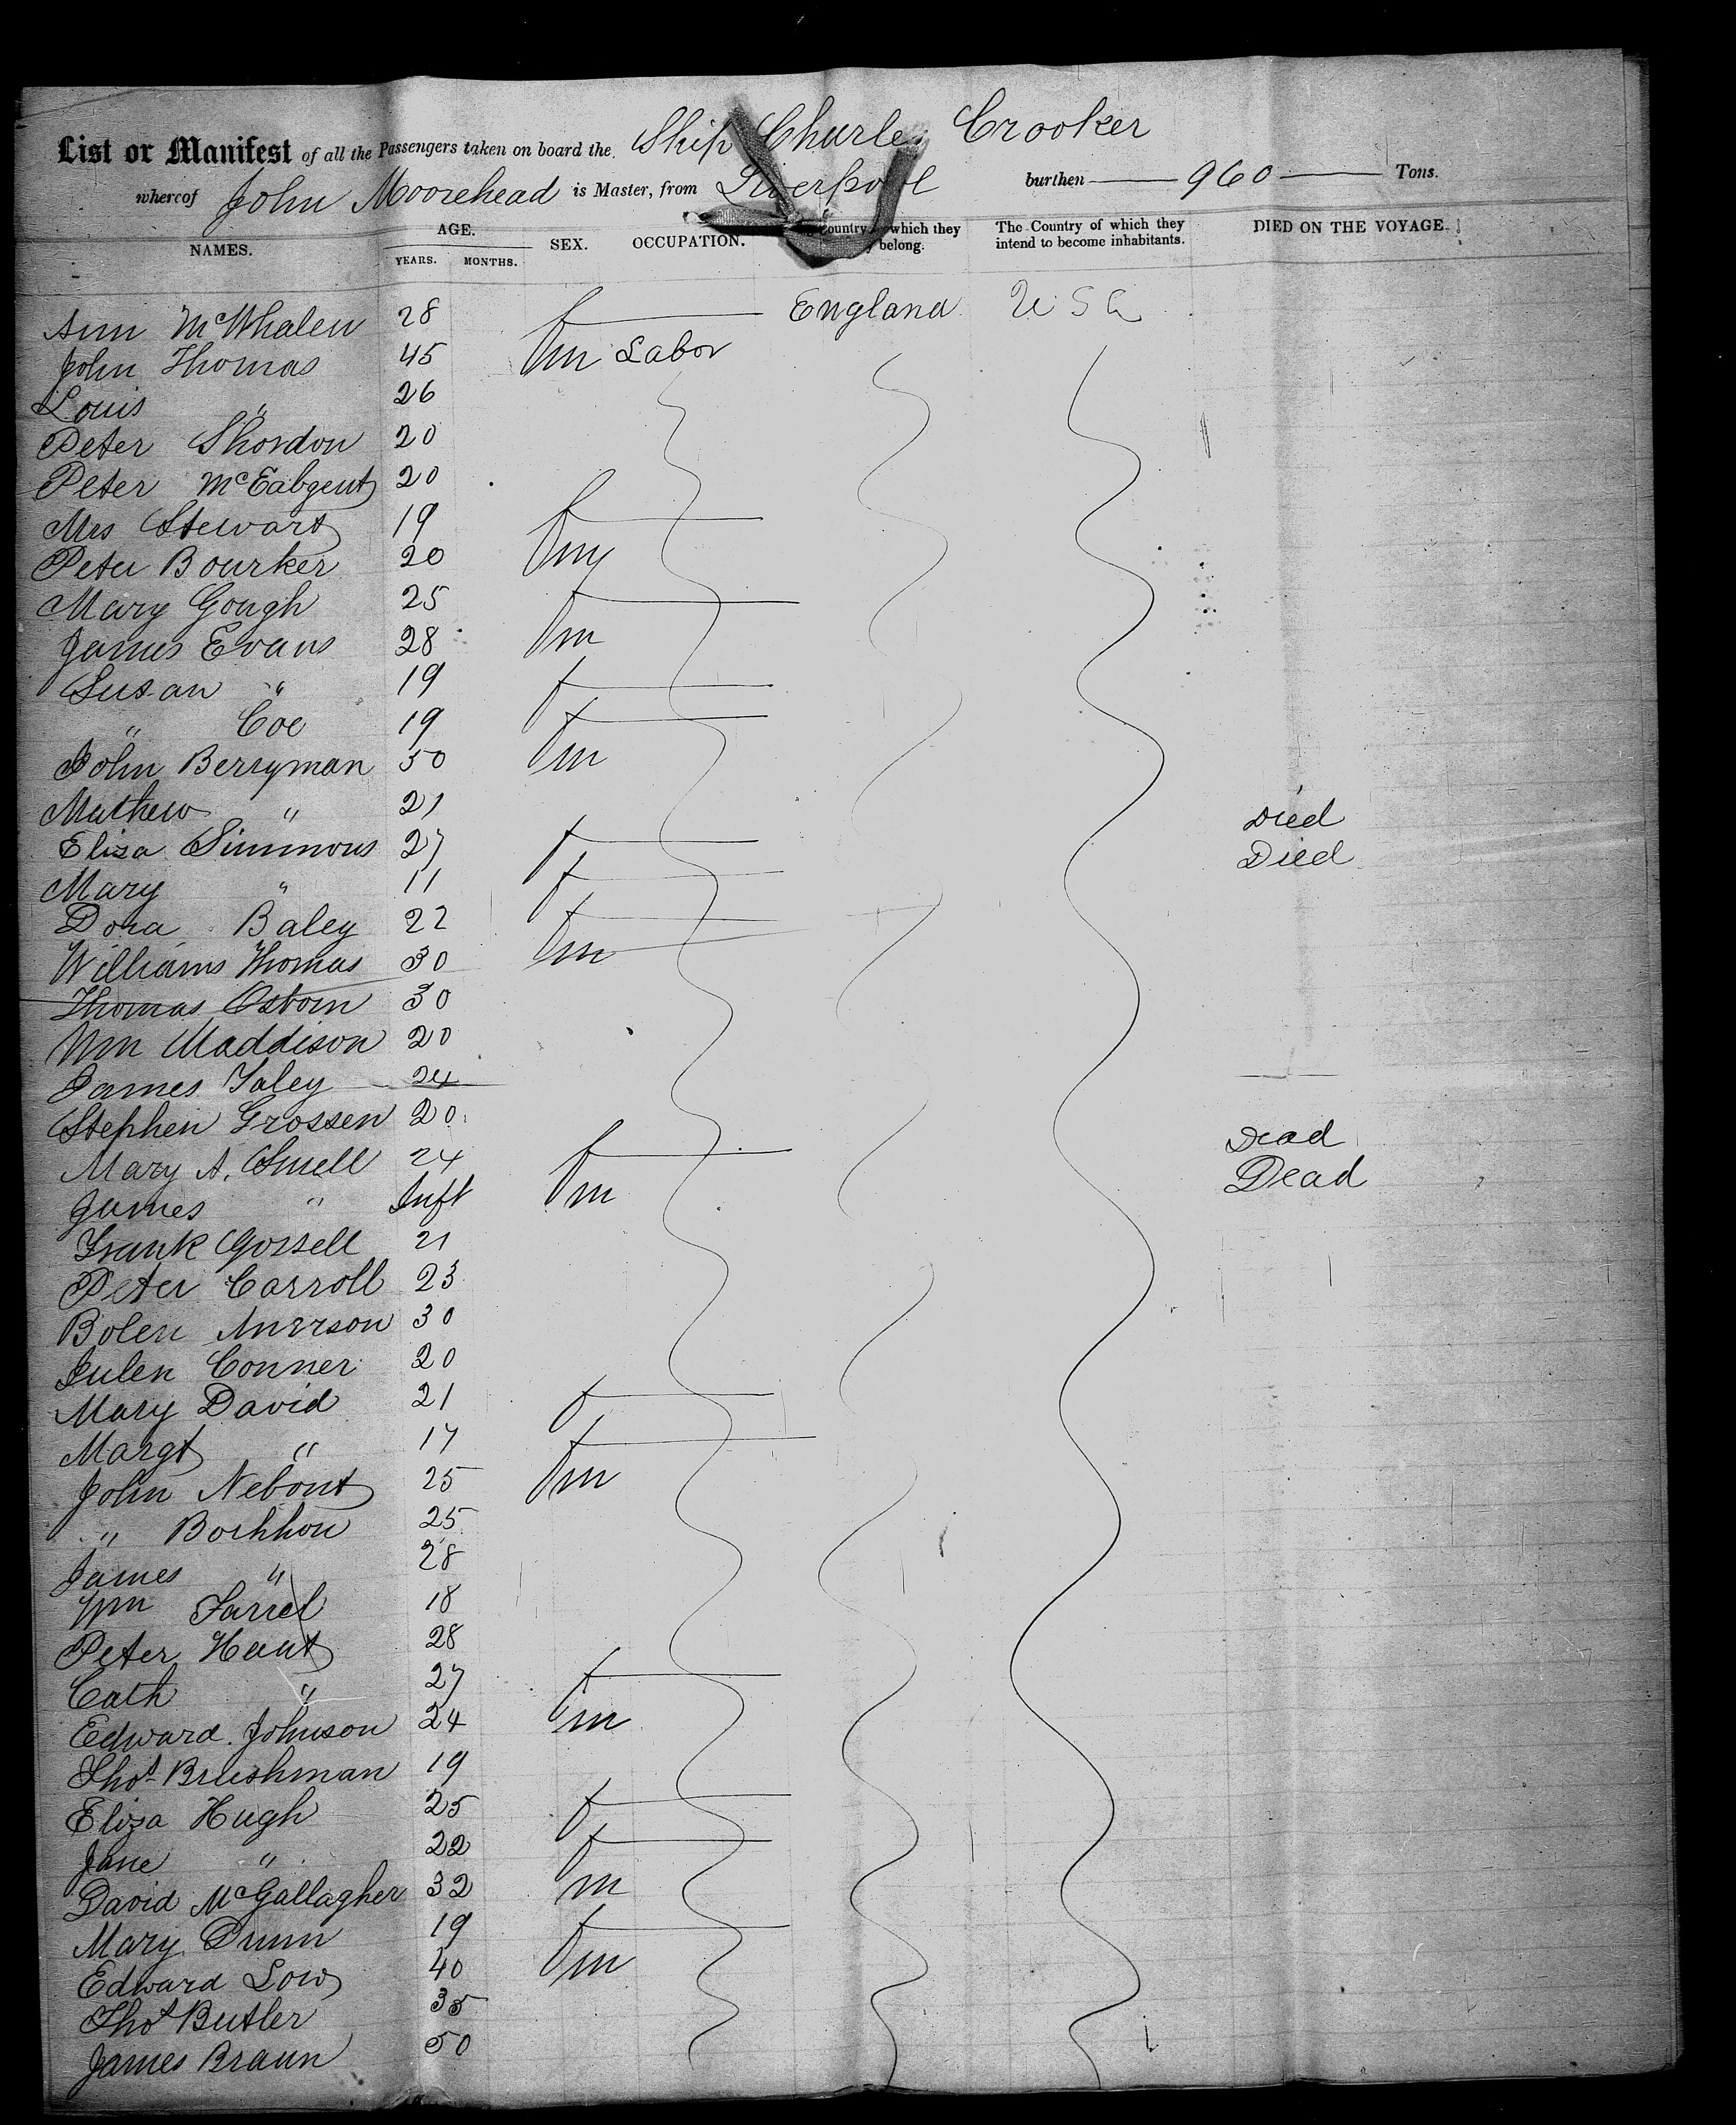 List or Manifest of all the Passengers taken on board the Ship Charles Crooker
whereof John Moorehead is Master, from Liverpool burthen 960 Tons.
NAMES. AGE. YEARS. MONTHS. SEX. OCCUPATION. Country which they belong. The Country of which they intend to become inhabitants. DIED ON THE VOYAGE.
Ann McWhalen 28 f England U S A
John Thomas 45 m Labor
Louis " 26
Peter Shordon 20
Peter 20
Mrs Stewart 19 f
Peter Bourker 20 m
Mary Gough 25 f
James Evans 28 m
Susan " 19 f
" Coe 19 f
John Berryman 50 m
Mathew " 21 Died
Eliza Simmons 27 f Died
Mary " 11 f
Dora Baley 22 f
Williams Thomas 30 m
Thomas Osborn 30
Wm Maddison 20
James Foley 24
Stephen Grossen 20
Mary A. Smell 24 f Dead
James " Inft m Dead
Frank Gorsell 21
Peter Carroll 23
Bolen Anerson 30
Julen Conner 20
Mary David 21 f
Margt " 17 f
John Nebont 25 m
" Borhhon 25
James " 28
Wm Farrel 18
Peter Hunt 28
Cath " 27 f
Edward Johnson 24 m
Thos Brushman 19
Eliza Hugh 25 f
Jane " 22 f
David McGallagher 32 m
Mary Dunn 19 f
Edward Low 40 m
Thos Butler 35
James Braun 50